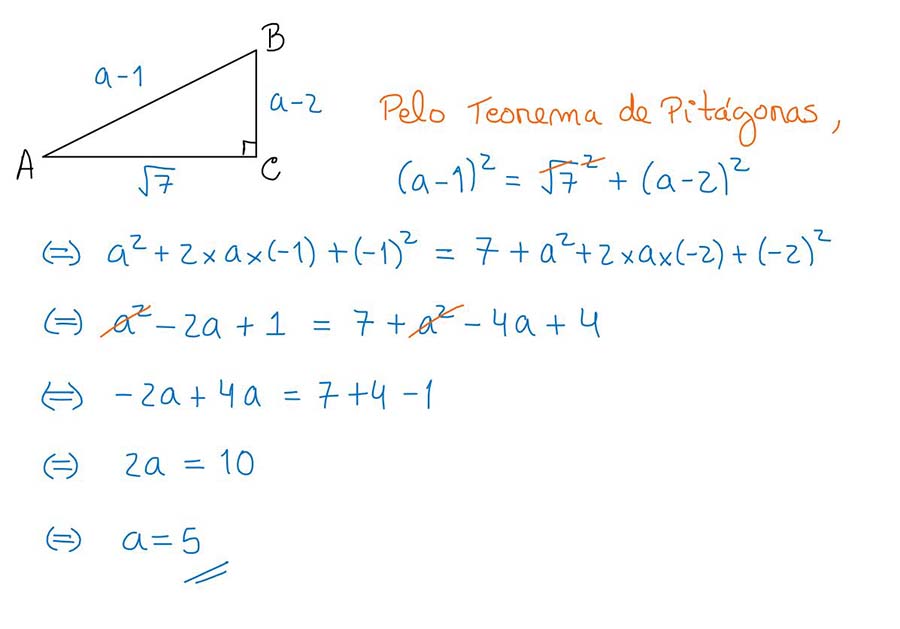 B
a-1
a-2
A
√7
C
Pelo Teorema de Pitágoras,
(a-1)² = √7² + (a-2)²
(=) a² + 2×a×(-1) + (-1)² = 7 + a² + 2×a×(-2) + (-2)²
(=) a² - 2a + 1 = 7 + a² - 4a + 4
(=) -2a + 4a = 7 + 4 - 1
(=) 2a = 10
(=) a = 5